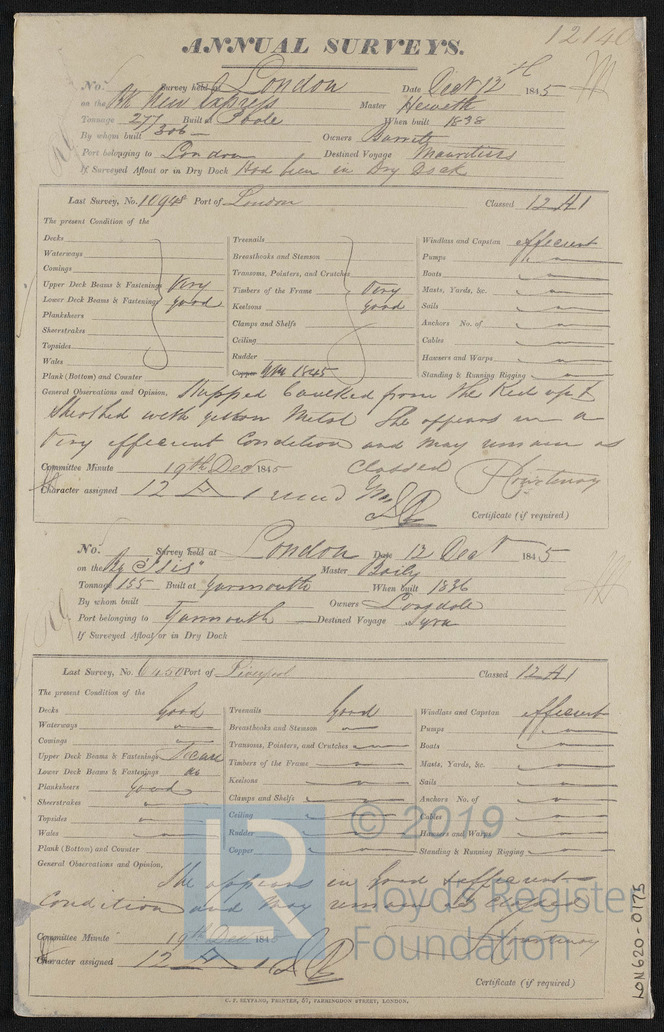 12140
ANNUAL SURVEYS.
No. Survey held at London Date Dect 12th 1845
on the Bk New Express Master Heweth
Tonnage 277 Built at Poole When built 1838
By whom built 306 — Owners Barrett
Port belonging to London Destined Voyage Mauritius
If Surveyed Afloat or in Dry Dock Had been in Dry Dock
Last Survey, No. 10948 Port of London Classed 12 A1
The present Condition of the
Decks
Waterways
Comings
Upper Deck Beams & Fastenings Very
Lower Deck Beams & Fastenings good
Planksheers
Sheerstrakes
Topsides
Wales
Plank (Bottom) and Counter
Treenails
Breasthooks and Stemson
Transoms, Pointers, and Crutches
Timbers of the Frame Very
Keelsons good
Clamps and Shelfs
Ceiling
Rudder
Copper YM 1845
Windlass and Capstan efficient
Pumps
Boats
Masts, Yards, &c.
Sails
Anchors No. of
Cables
Hawsers and Warps
Standing & Running Rigging
General Observations and Opinion, Stripped Caulked from the Keel up &
Sheathed with yellow Metal She appears in a
Very efficient Condition and may remain as
Classed Courtenay
Committee Minute 19th Dec 1845
Character assigned 12 A 1
Certificate (if required)
No. Survey held at London Date 12 Dect 1845
on the Bg "Isis" Master Baily
Tonnage 155 Built at Yarmouth When built 1836
By whom built Owners Longdale
Port belonging to Yarmouth Destined Voyage Syra
If Surveyed Afloat or in Dry Dock
Last Survey, No. 6450 Port of Liverpool Classed 12 A1
The present Condition of the
Decks Good
Waterways
Comings
Upper Deck Beams & Fastenings Secure
Lower Deck Beams & Fastenings do
Planksheers good
Sheerstrakes
Topsides
Wales
Plank (Bottom) and Counter
Treenails Good
Breasthooks and Stemson
Transoms, Pointers, and Crutches
Timbers of the Frame
Keelsons
Clamps and Shelfs
Ceiling
Rudder
Copper
Windlass and Capstan efficient
Pumps
Boats
Masts, Yards, &c.
Sails
Anchors No. of
Cables
Hawsers and Warps
Standing & Running Rigging
General Observations and Opinion,
She appears in good & efficient
Condition and may remain as Classed
Courtenay
Committee Minute 19th Dec 1845
Character assigned 12 A 1
Certificate (if required)
C. F. SEYFANG, PRINTER, 57, FARRINGDON STREET, LONDON.
LR © 2019
Lloyd's Register
Foundation
LON620-0175